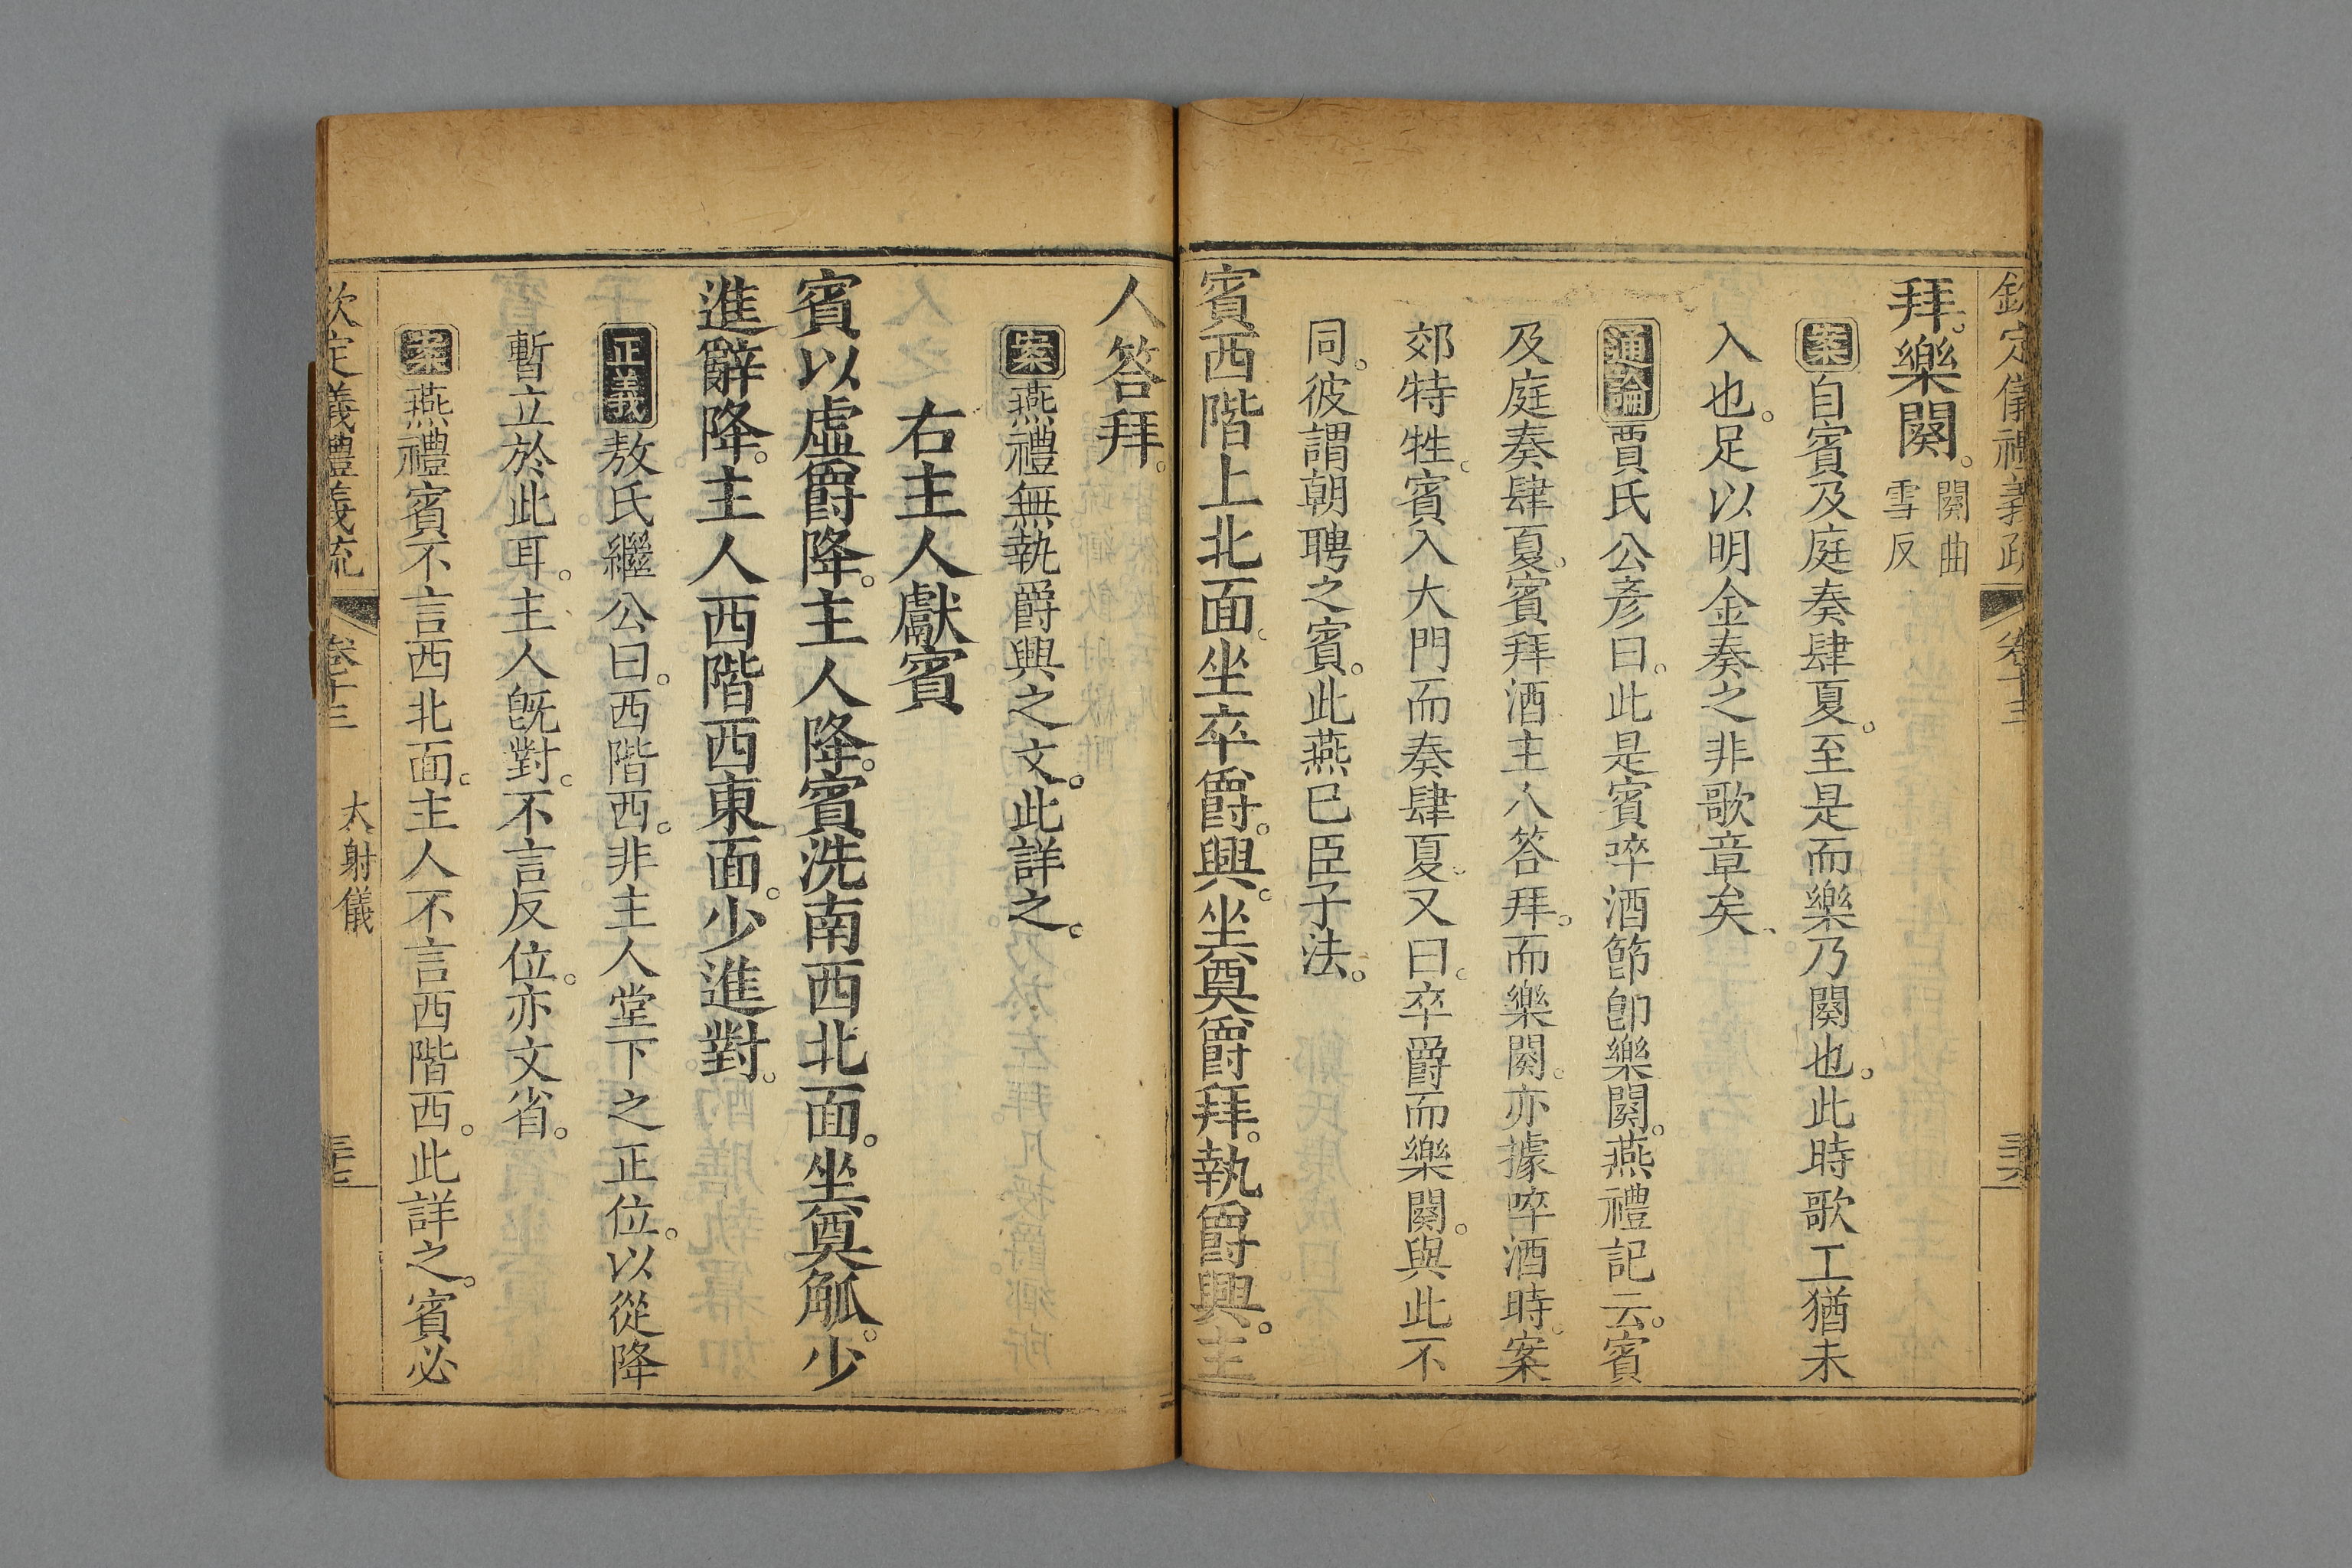 欽定儀禮義疏 卷十三
拜。樂闋。闋曲雪反
案自賓及庭奏肆夏。至是而樂乃闋也。此時歌工猶未
入也。足以明金奏之非歌章矣、
通論賈氏公彥曰。此是賓啐酒節卽樂闋。燕禮記云。賓
及庭奏肆夏。賓拜酒主人答拜。而樂闋。亦據啐酒時。案
郊特牲。賓入大門而奏肆夏。又曰。卒爵而樂闋。與此不
同。彼謂朝聘之賓。此燕已臣子法。
賓西階上北面。坐卒爵。興。坐奠爵拜。執爵興。主
人答拜。
案燕禮無執爵興之文。此詳之。
右主人獻賓
賓以虛爵降。主人降。賓洗南西北面。坐奠觚。少
進辭降。主人西階西東面。少進對。
正義敖氏繼公曰。西階西。非主人堂下之正位。以從降
暫立於此耳。主人旣對。不言反位。亦文省。
案燕禮賓不言西北面。主人不言西階西。此詳之。賓必
欽定儀禮義疏 卷十三 大射儀